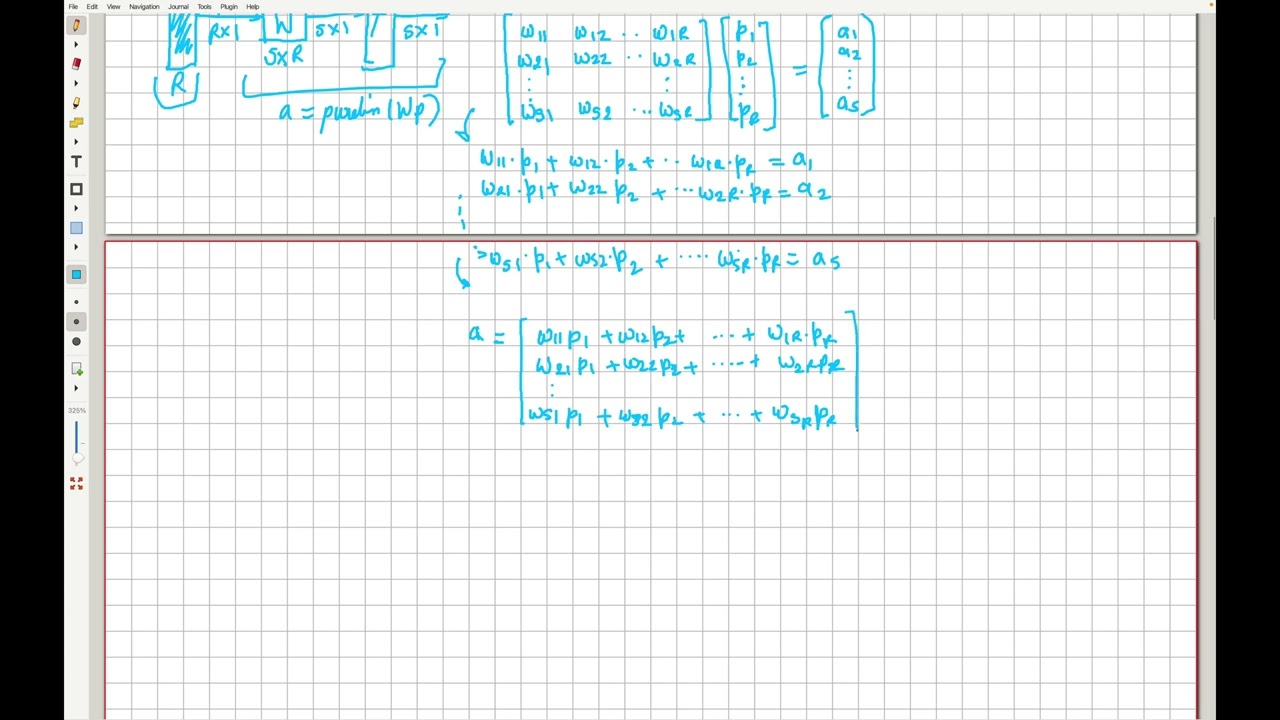 File Edit View Navigation Journal Tools Plugin Help
R×1 W S×1 S×1
S×R
R
a = purelin(Wp)
w11 w12 ·· w1R p1 a1
w21 w22 ·· w2R p2 = a2
⋮ ⋮ ⋮ ⋮
ws1 ws2 ··· wsR pR as
w11·p1 + w12·p2 + ·· w1R·pR = a1
w21·p1 + w22 p2 + ··· w2R·pR = a2
ws1·p1 + ws2·p2 + ···· wsR·pR = as
a = w11p1 + w12p2 + ··· + w1R·pR
w21p1 + w22p2 + ····· + w2RpR
⋮
ws1p1 + ws2p2 + ··· + wsRpR
T
325%